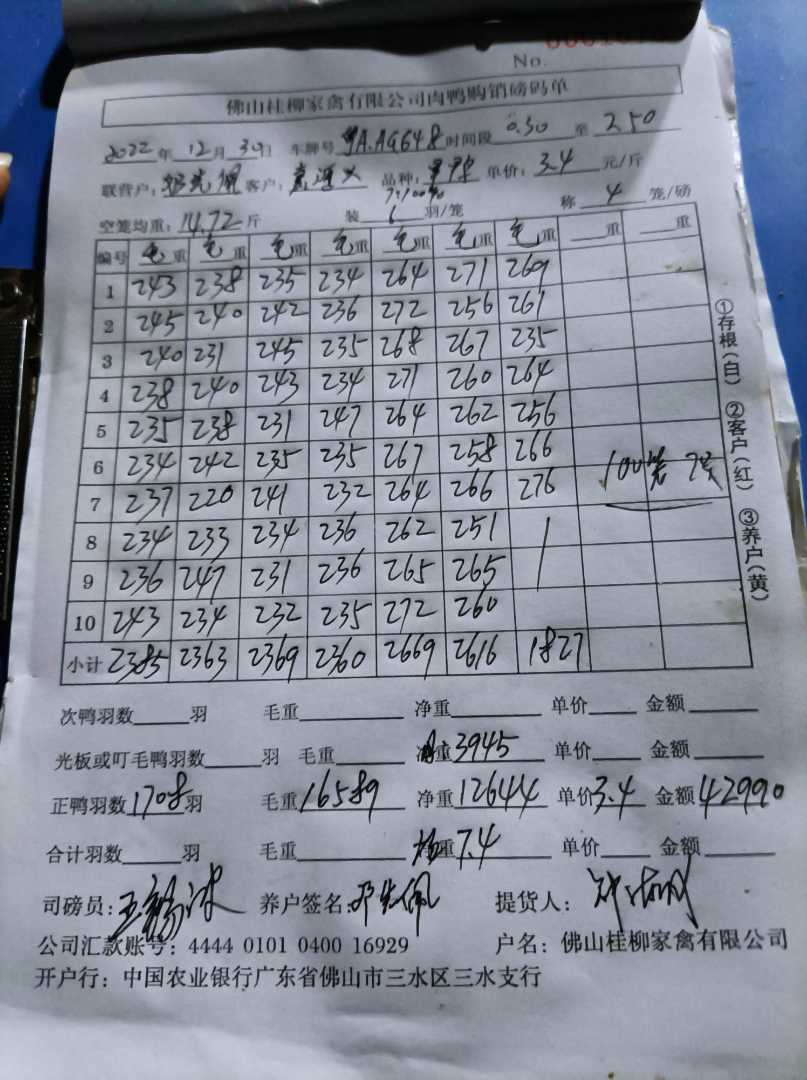 No.
佛山桂柳家禽有限公司肉鸭购销磅码单
2022年12月30日 车牌号 A.AG648 时间段 0.30 至 2.50
联营户: 客户: 品种: 单价: 3.4 元/斤
空笼均重: 14.72 斤 装 6 羽/笼 称 4 笼/磅
编号 毛重 毛重 毛重 毛重 毛重 毛重 毛重 重 重
1 243 238 235 234 264 271 269
2 245 240 242 236 272 256 261
3 240 231 245 235 268 267 235
4 238 240 243 234 271 260 264
5 235 238 231 247 264 262 256
6 234 242 235 235 267 258 266
7 237 220 241 232 264 266 276
8 234 233 234 236 262 251
9 236 247 231 236 265 265
10 243 234 232 235 272 260
小计 2385 2363 2369 2360 2669 2616 1827
100笼
①存根(白) ②客户(红) ③养户(黄)
次鸭羽数 羽 毛重 净重 单价 金额
光板或叮毛鸭羽数 羽 毛重 重 3945 单价 金额
正鸭羽数 1708 羽 毛重 16589 净重 12644 单价 3.4 金额 42990
合计羽数 羽 毛重 均重 7.4 单价 金额
司磅员: 养户签名: 提货人:
公司汇款账号: 4444 0101 0400 16929 户名: 佛山桂柳家禽有限公司
开户行: 中国农业银行广东省佛山市三水区三水支行